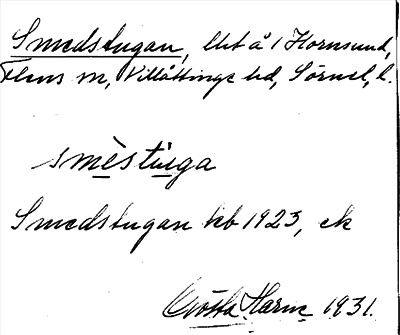 Smedstugan, lht å 1 Hornsund,
Flens sn, Villåttinge hd, Sörml, l.
smèstùga
Smedstugan kb 1923, ek
Gösta Harne 1931.